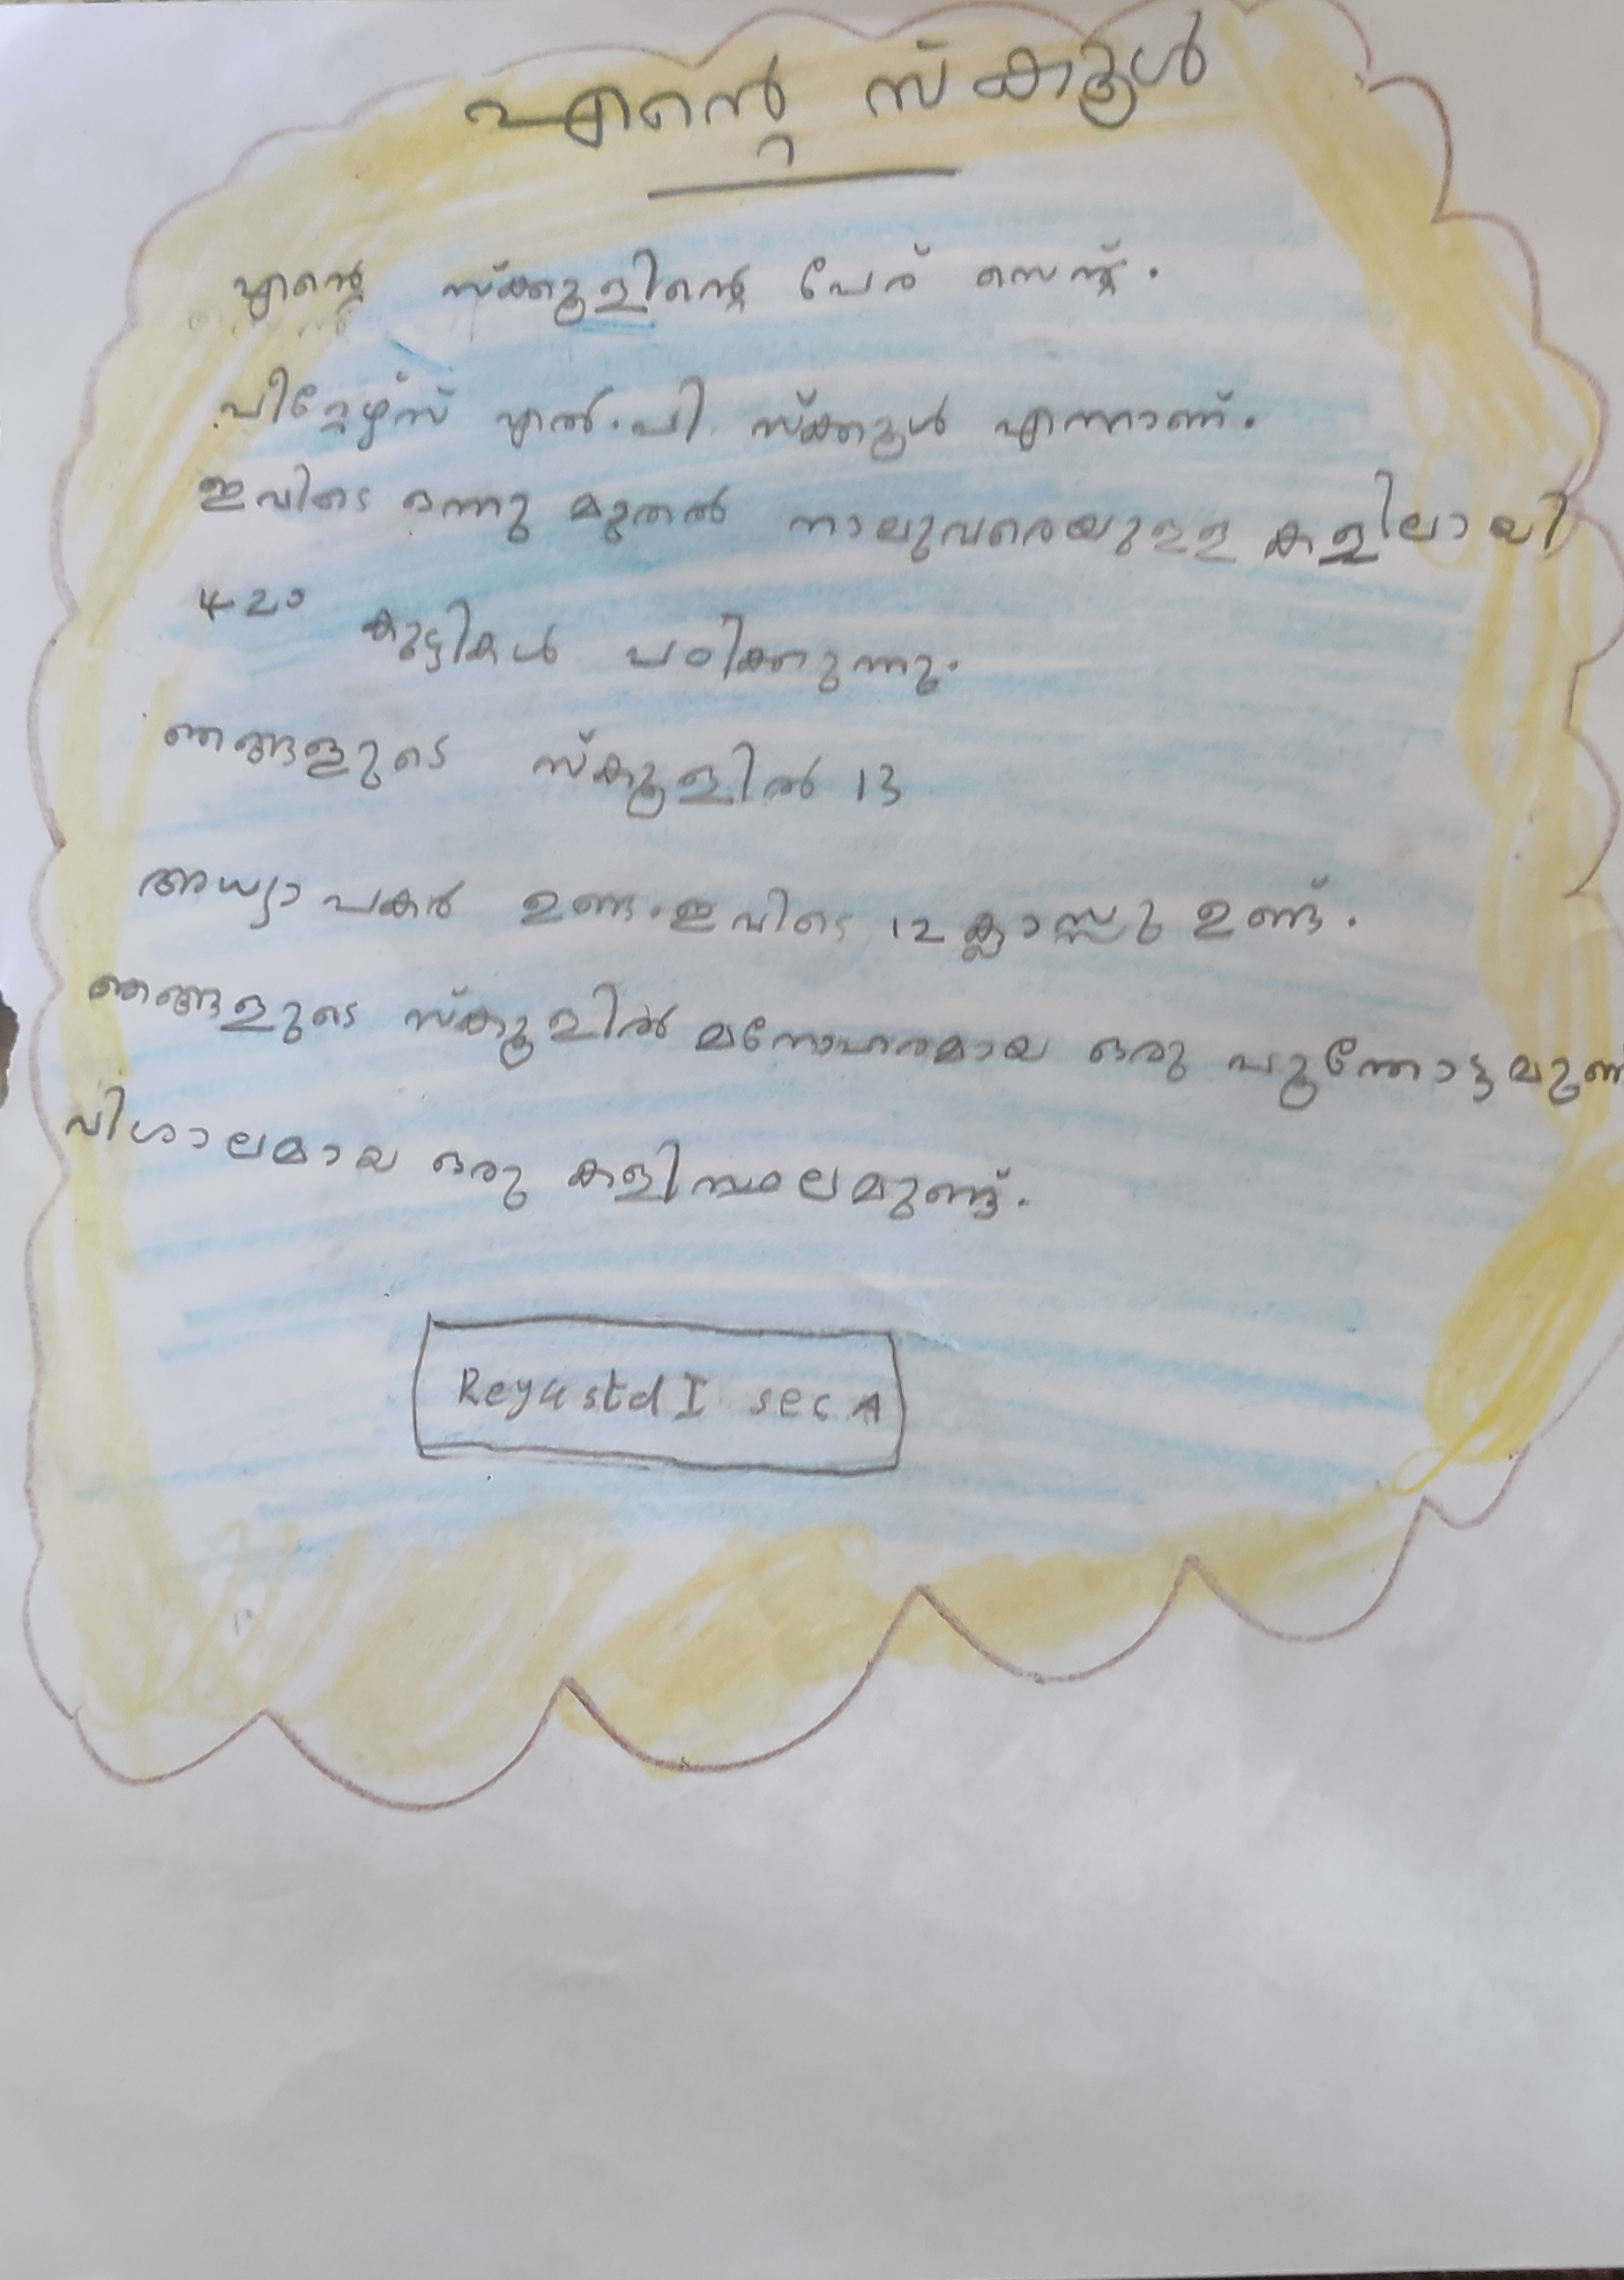 എന്റെ സ്കൂൾ
എന്റെ സ്ക്കൂളിന്റെ പേര് സെന്റ്.
പീറ്റേഴ്സ് എൽ.പി. സ്ക്കൂൾ എന്നാണ്.
ഇവിടെ ഒന്നു മുതൽ നാലുവരെയുള്ള കളിലായി
420 കുട്ടികൾ പഠിക്കുന്നു.
ഞങ്ങളുടെ സ്കൂളിൽ 13
അധ്യാപകർ ഉണ്ട.ഇവിടെ 12 ക്ലാസ്സു ഉണ്ട്.
ഞങ്ങളുടെ സ്കൂളിൽ മനോഹരമായ ഒരു പൂന്തോട്ടമുണ
വിശാലമായ ഒരു കളിസ്ഥലമുണ്ട്.
Reyustd I sec A